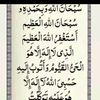 سُبْحَانَ اللهِ وَبِحَمْدِهِ
سُبْحَانَ اللهِ الْعَظِيمِ
أَسْتَغْفِرُ اللهَ الْعَظِيمَ
الَّذِي لَا إِلَهَ إِلَّا هُوَ
الْحَيُّ الْقَيُّومُ وَأَتُوبُ إِلَيْهِ
حَسْبِيَ اللهُ لَا إِلَهَ إِلَّا
هُوَ عَلَيْهِ تَوَكَّلْتُ